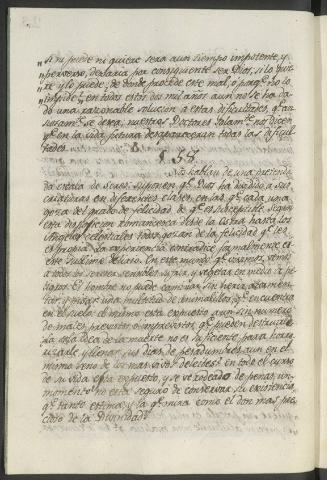 „Si ni puede ni quiere sera aun tiempo impotente, y
„perverso, dexaria por consiguiente ser Dios; si lo quie
„re y lo puede, de donde procede este mal, o porq.e no lo
„impide; en todos estos dos mil años aun no se ha da
do una razonable solucion a estas dificultades, q.e cau
se dicen
q.e en la vida futura desapareceran todas las dificul
tades.
§. 58.
Nos hablan de una pretendi
da escala de Seres: suponen q.e Dios ha dividido a sus
criaturas en diferentes clases, en las q.e cada una
goza del grado de felicidad de q.e es susceptible. Segun
esta disposicion romanesca desde la ostra hasta los
Angeles celestiales todos gozan de la felicidad q.e les
es propia. La experiencia contradice formalmente es
este sublime delirio. En este mundo q.e vivimos, vemos
a todos los seres sensibles sufrir, y vegetar en medio de pe
ligros. El hombre no puede caminar sin herir, atormen
tar, y pisar una multitud de animalillos q.e encuentra
en el suelo: el mismo esta expuesto aun sin numero
de males previstos, o imprevistos, q.e pueden destruirle.
La sola idea de la muerte no es suficiente para horro
rizarle, y llenar sus dias de pesadumbres aun en el
mismo seno de los mas deleites? en todo el curso
de su vida esta expuesto, y se ve rodeado de penas, un
momento no esta seguro de conservar su existencia
q.e tanto estima, y la q.e mira como el don mas pre
cioso de la Divinidad.